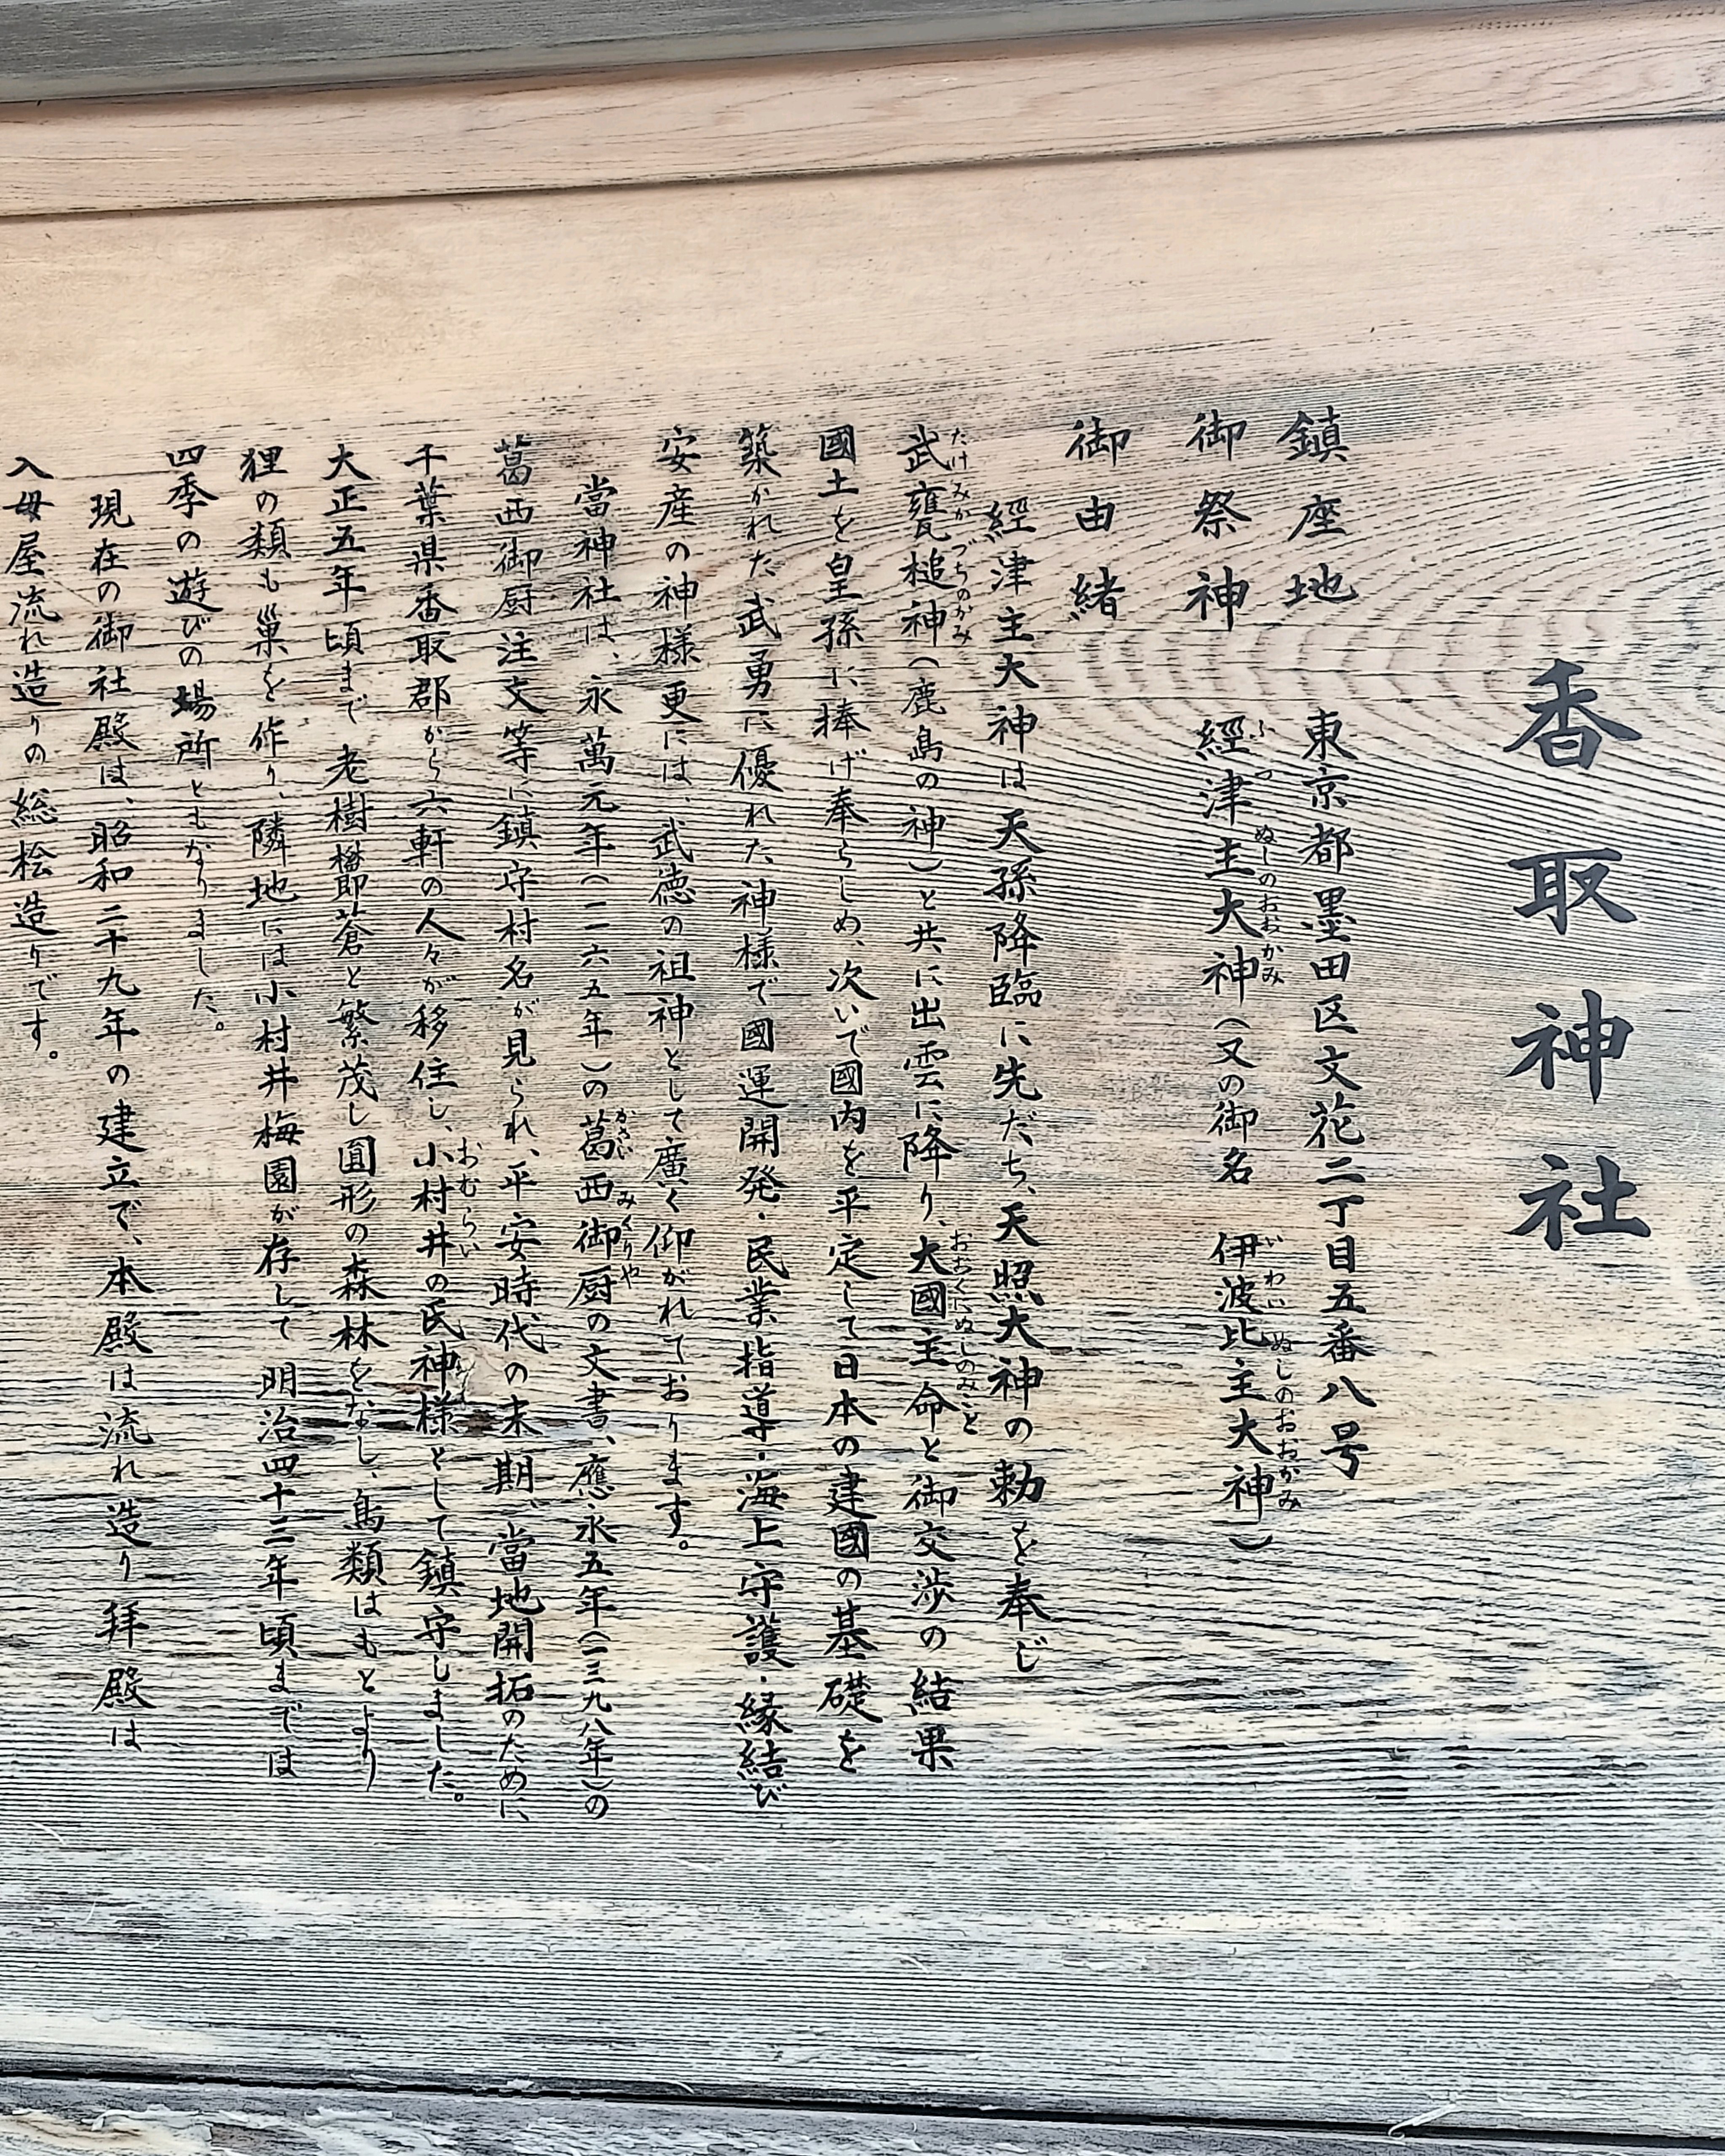 香取神社
鎮座地　東京都墨田区文花二丁目五番八号
御祭神　經津主大神（又の御名　伊波比主大神）
ふつぬしのおおかみ　いわいぬしのおおかみ
御由緒
經津主大神は天孫降臨に先だち、天照大神の勅を奉じ
武甕槌神（鹿島の神）と共に出雲に降り、大國主命と御交渉の結果
たけみかづちのかみ　おおくにぬしのみこと
國土を皇孫に捧げ奉らしめ、次いで國内を平定して日本の建國の基礎を
築かれた武勇に優れた神様で國運開発・民業指導・海上守護・縁結び
安産の神様更には、武徳の祖神として廣く仰がれております。
當神社は、永萬元年（一一六五年）の葛西御厨の文書、應永五年（一三九八年）の
かさい　みくりや
葛西御厨注文等に鎮守村名が見られ、平安時代の末期、當地開拓のために、
千葉県香取郡から六軒の人々が移住し、小村井の氏神様として鎮守しました。
おむらい
大正五年頃まで老樹欝蒼と繁茂し圓形の森林をなし、鳥類はもとより
狸の類も巣を作り、隣地には小村井梅園が存して明治四十三年頃までは
四季の遊びの場所ともなりました。
現在の御社殿は、昭和二十九年の建立で、本殿は流れ造り拝殿は
入母屋流れ造りの総桧造りです。